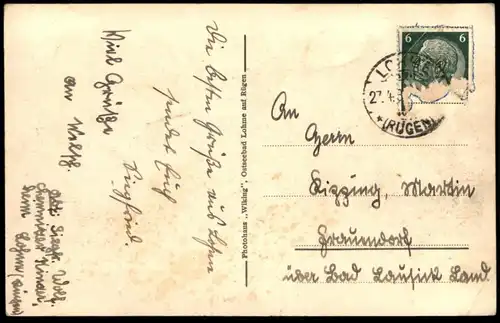 Die besten Grüße aus Lohme
sendet Euch
Siegfried.
Viel Grüße
an Wolfg.
Abs: Siegfr. Wolf.
Chemnitzer Kinder,
heim Lohme (Rügen)
Photohaus „Wiking", Ostseebad Lohme auf Rügen
6 6
LOHME
27.4.3
(RÜGEN)
An
Herrn
Kipping, Martin
Fraundorf
über Bad Lausick Land.